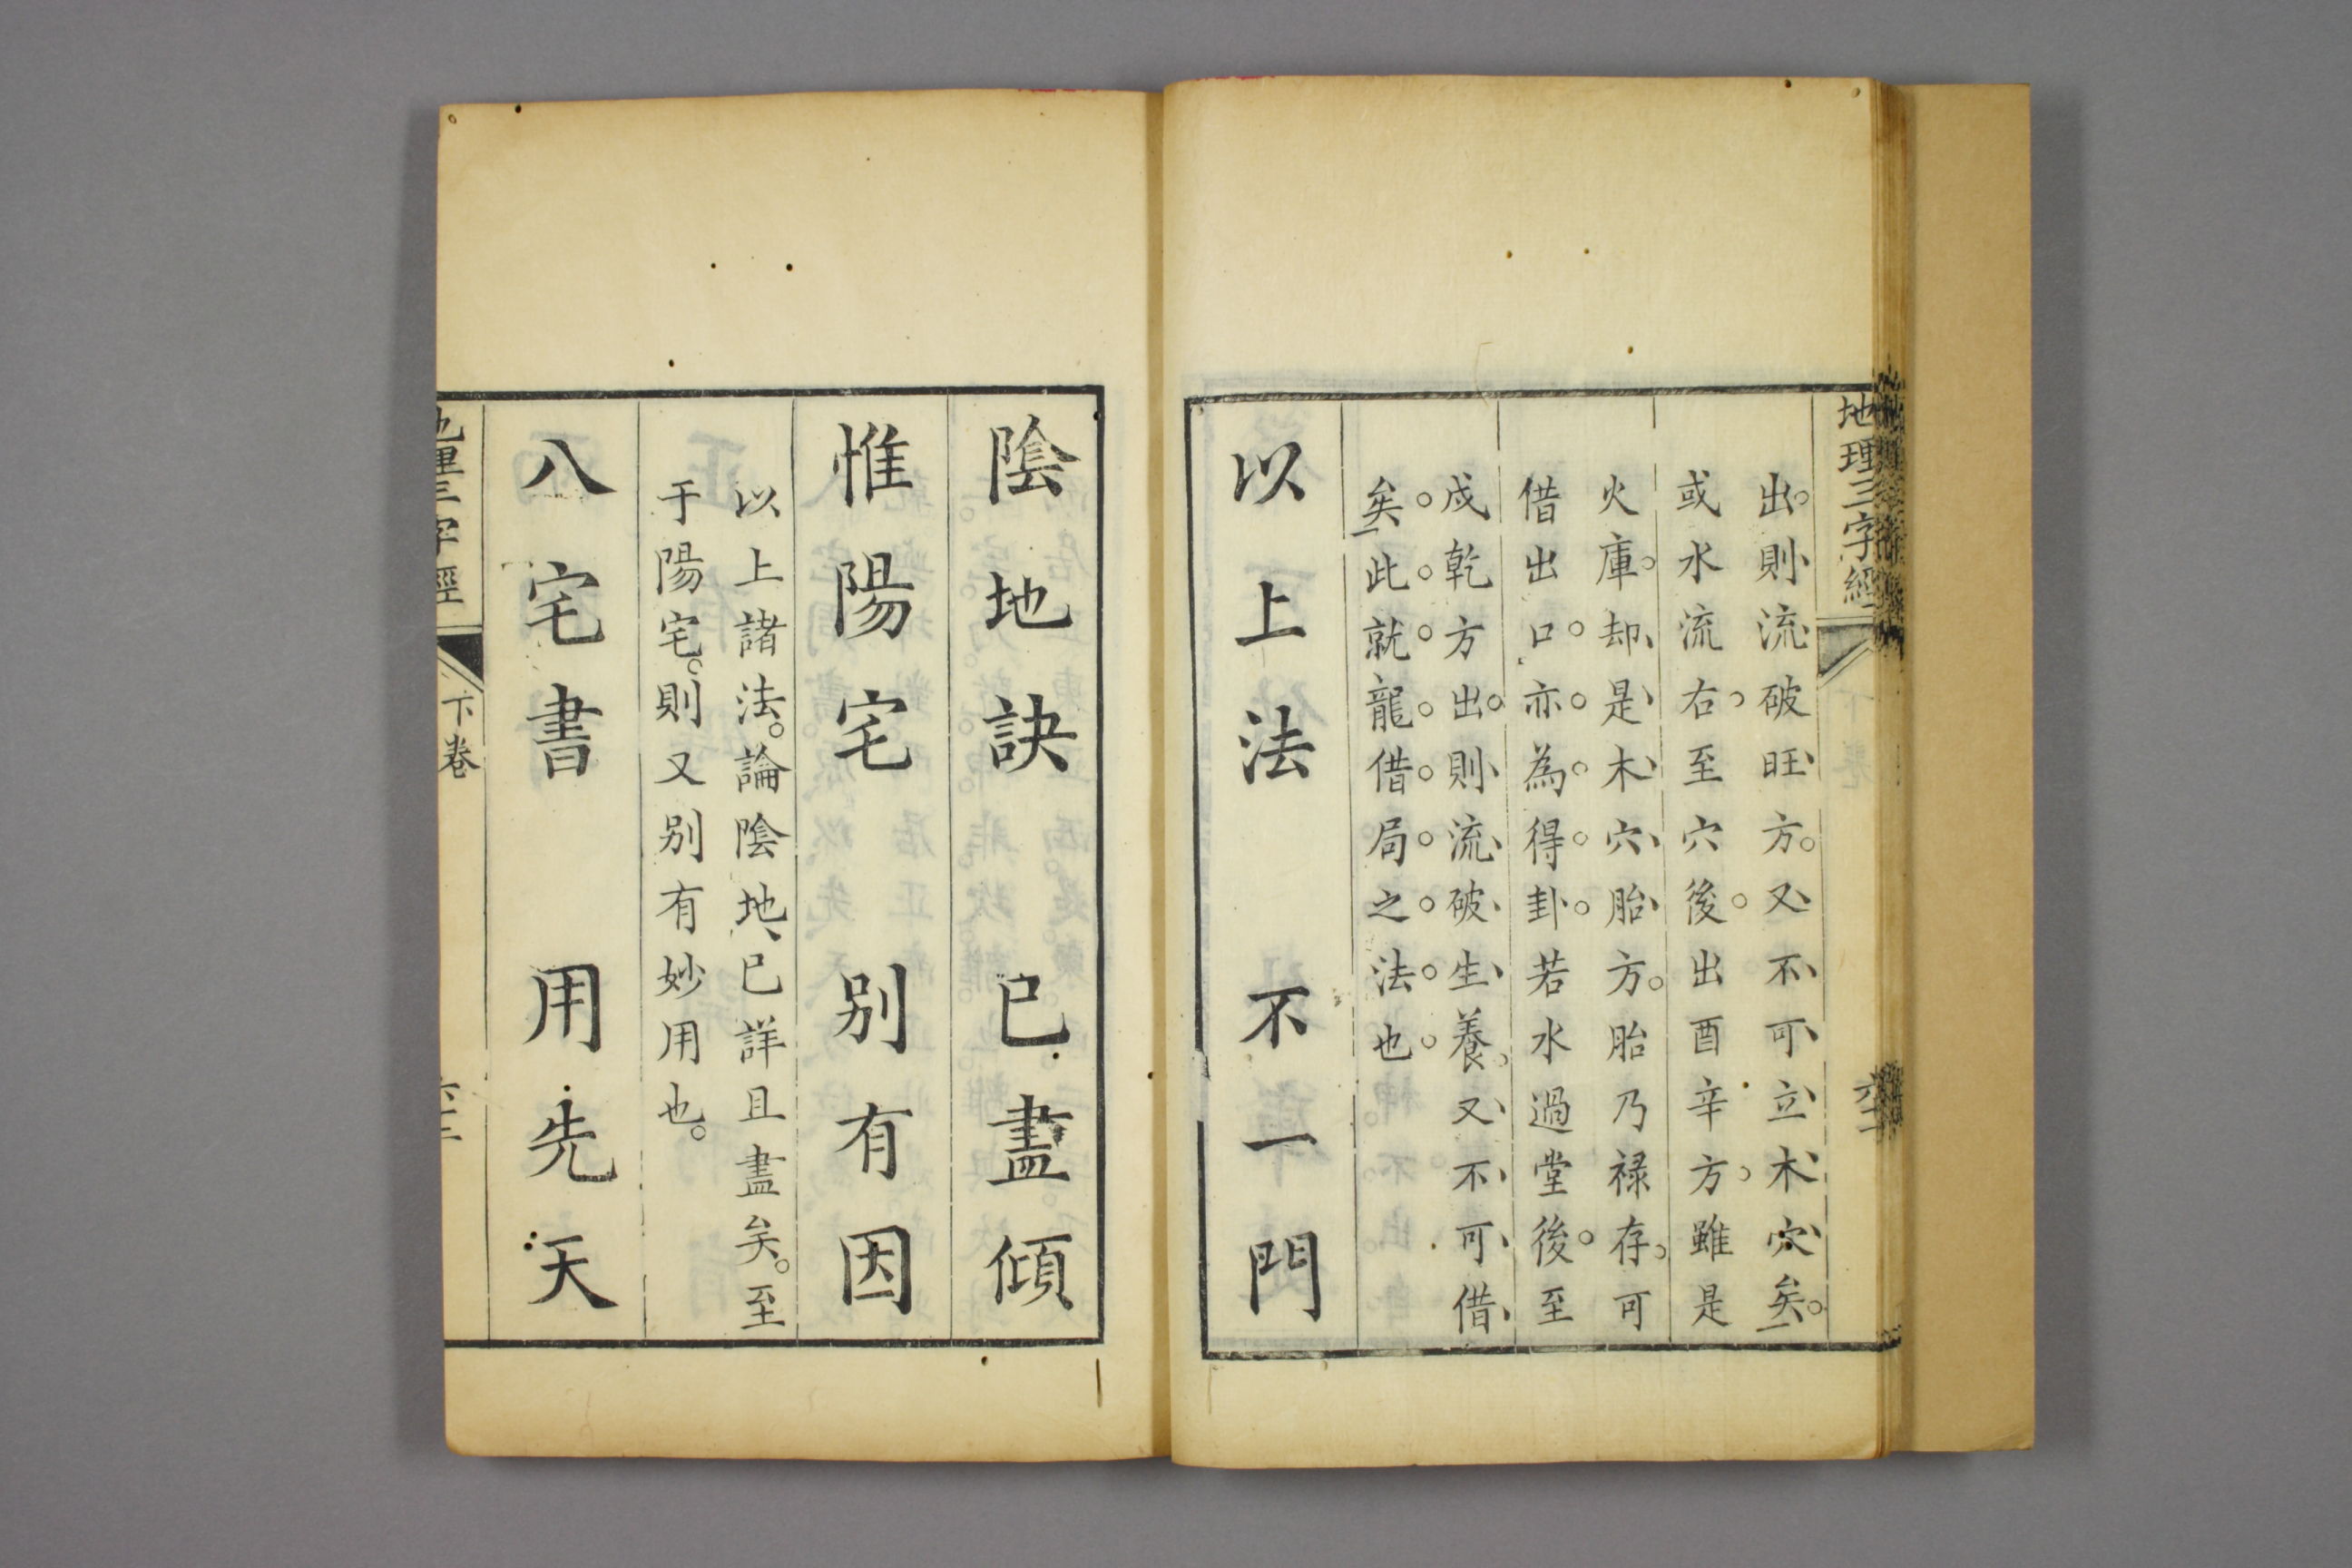 地理三字經
六十一
出。則流破旺方。又不可立木穴矣。
或水流右至穴後。出酉辛方雖是
火庫。却是木穴胎方。胎乃祿存。可
借出口。亦為得卦。若水過堂後。至
戍乾方出。則流破生養。又不可借
矣。此就龍借局之法也。
以上法 不一門
陰地訣 已盡傾
惟陽宅 別有因
以上諸法。論陰地已詳且盡矣。至
于陽宅。則又別有妙用也。
八宅書 用先天
地理三字經
下卷